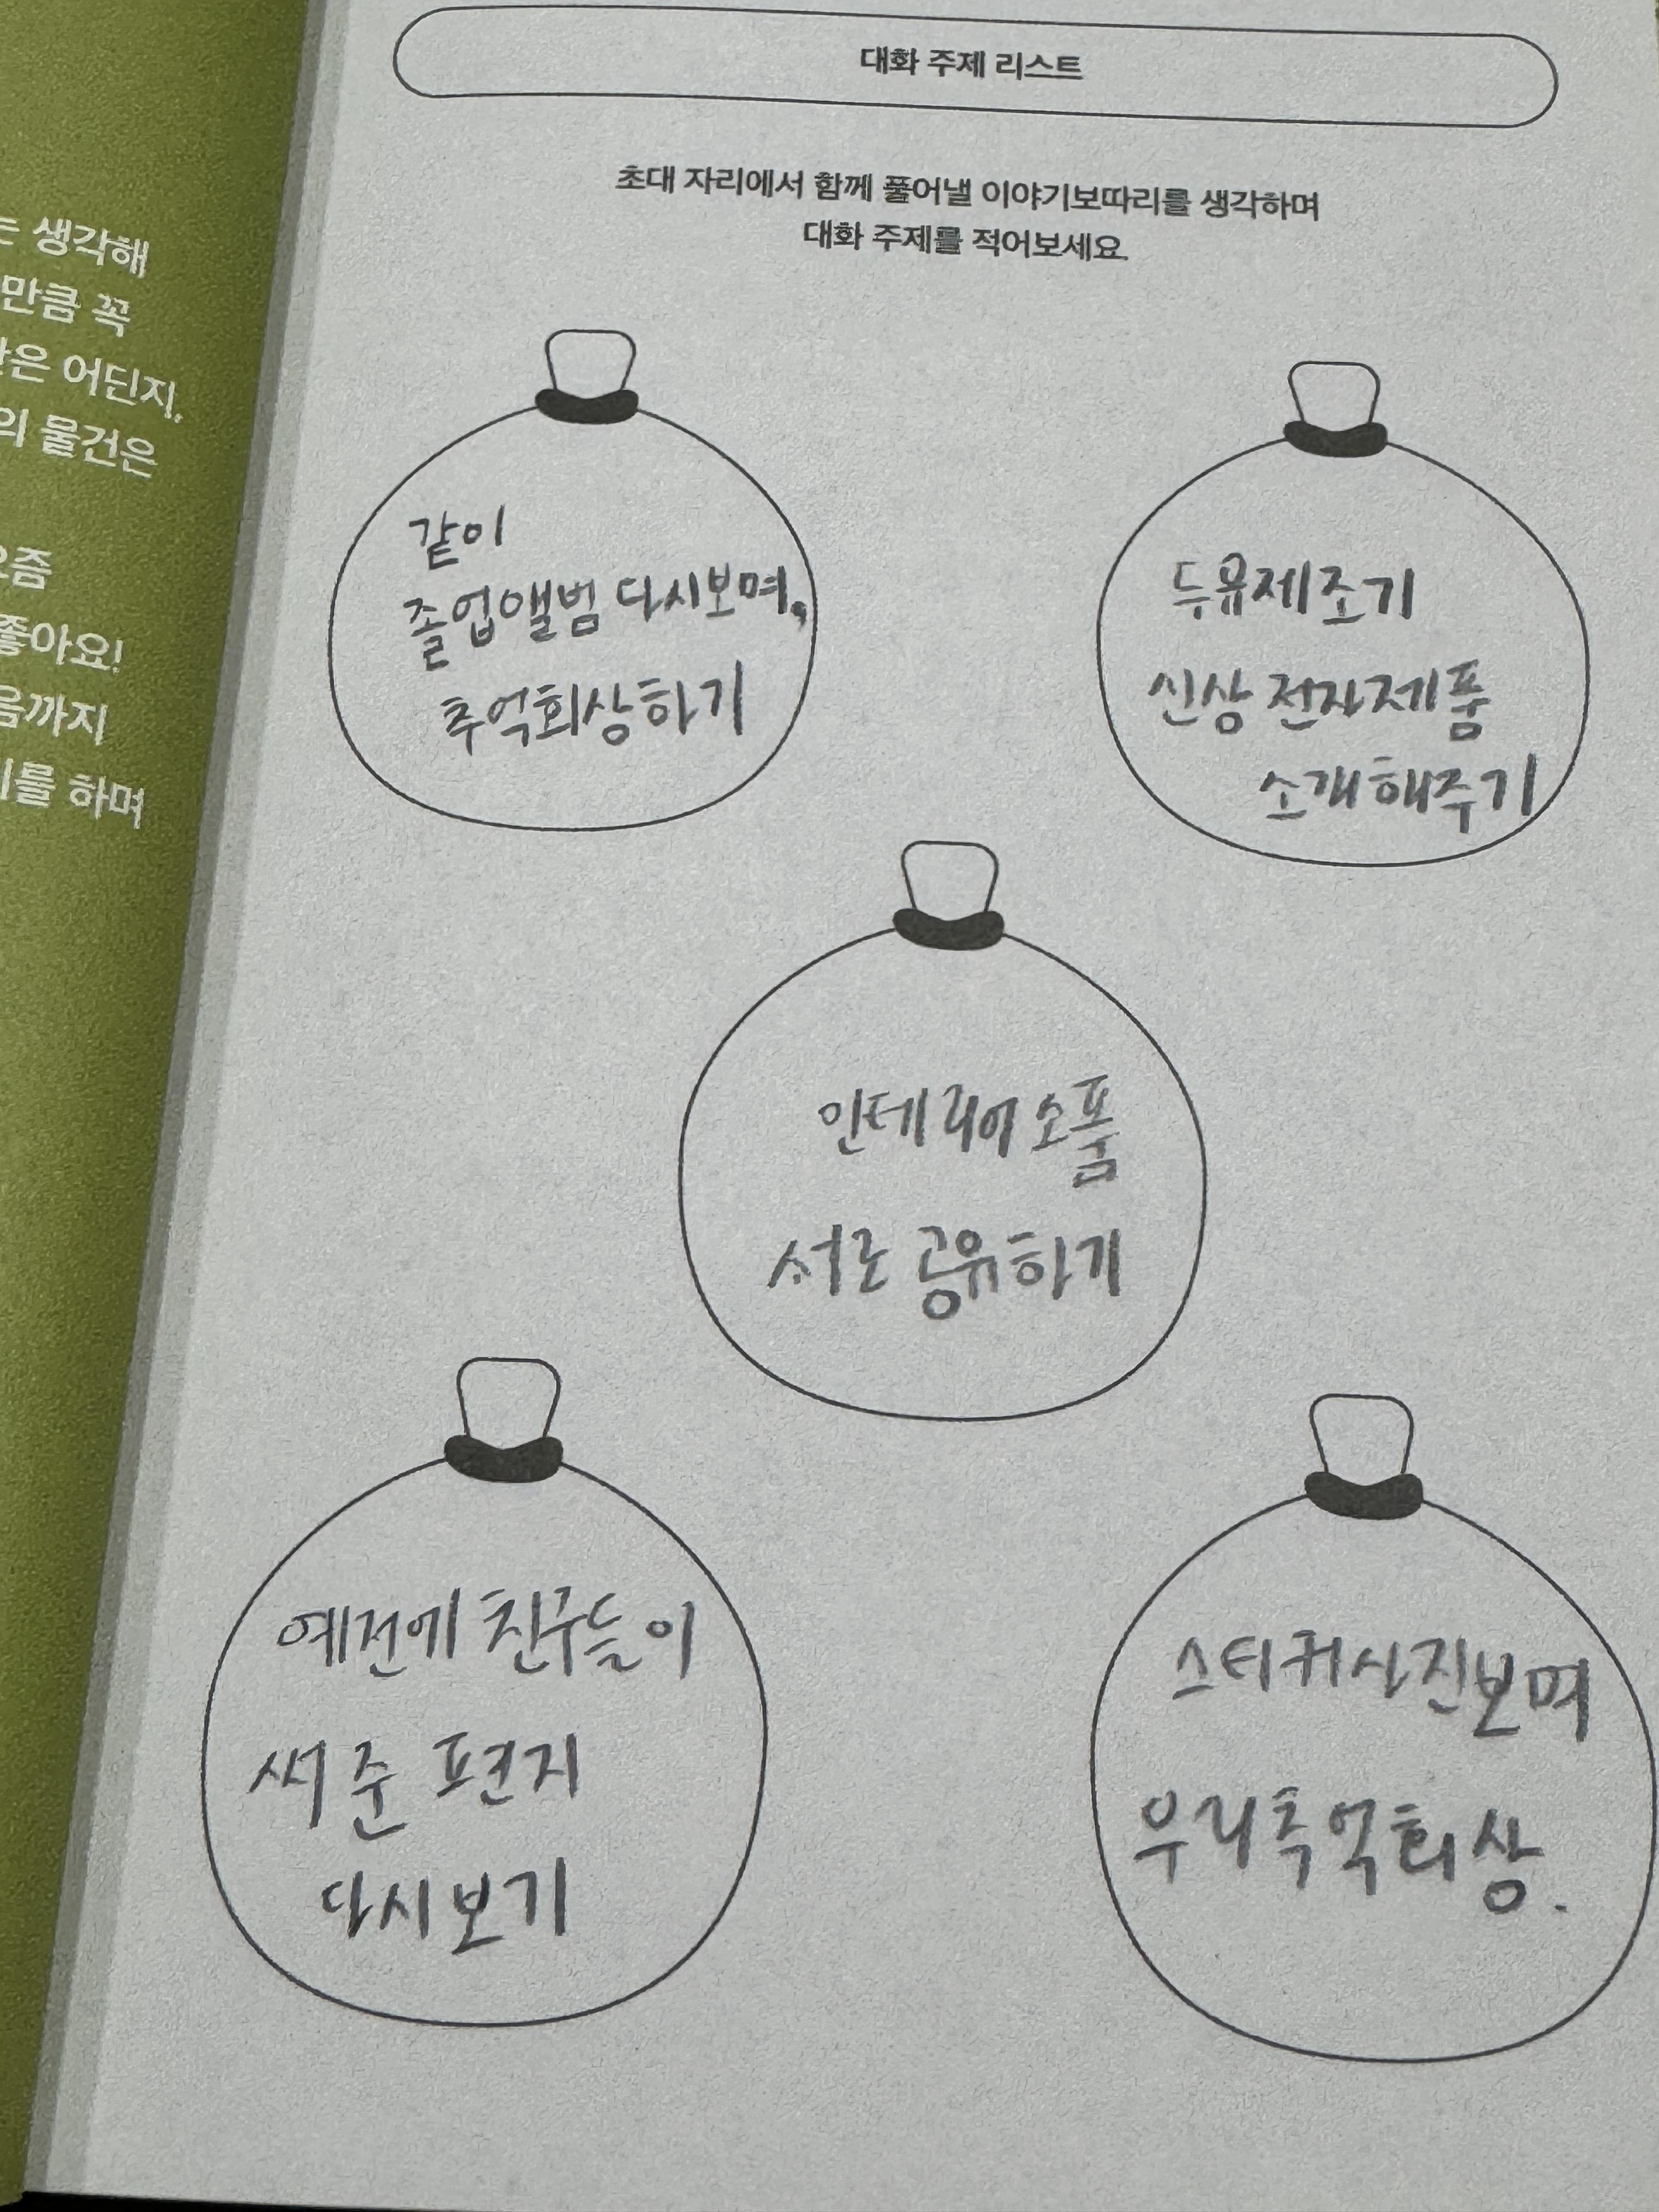 는 생각해
만큼 꼭
은 어딘지,
의 물건은
요즘
좋아요!
음까지
를 하며
대화 주제 리스트
초대 자리에서 함께 풀어낼 이야기보따리를 생각하며
대화 주제를 적어보세요.
같이
졸업앨범 다시보며,
추억회상하기
두유제조기
신상 전자제품
소개해주기
인테리어 소품
서로 공유하기
예전에 친구들이
써 준 편지
다시 보기
스티커사진보며
우리추억회상.